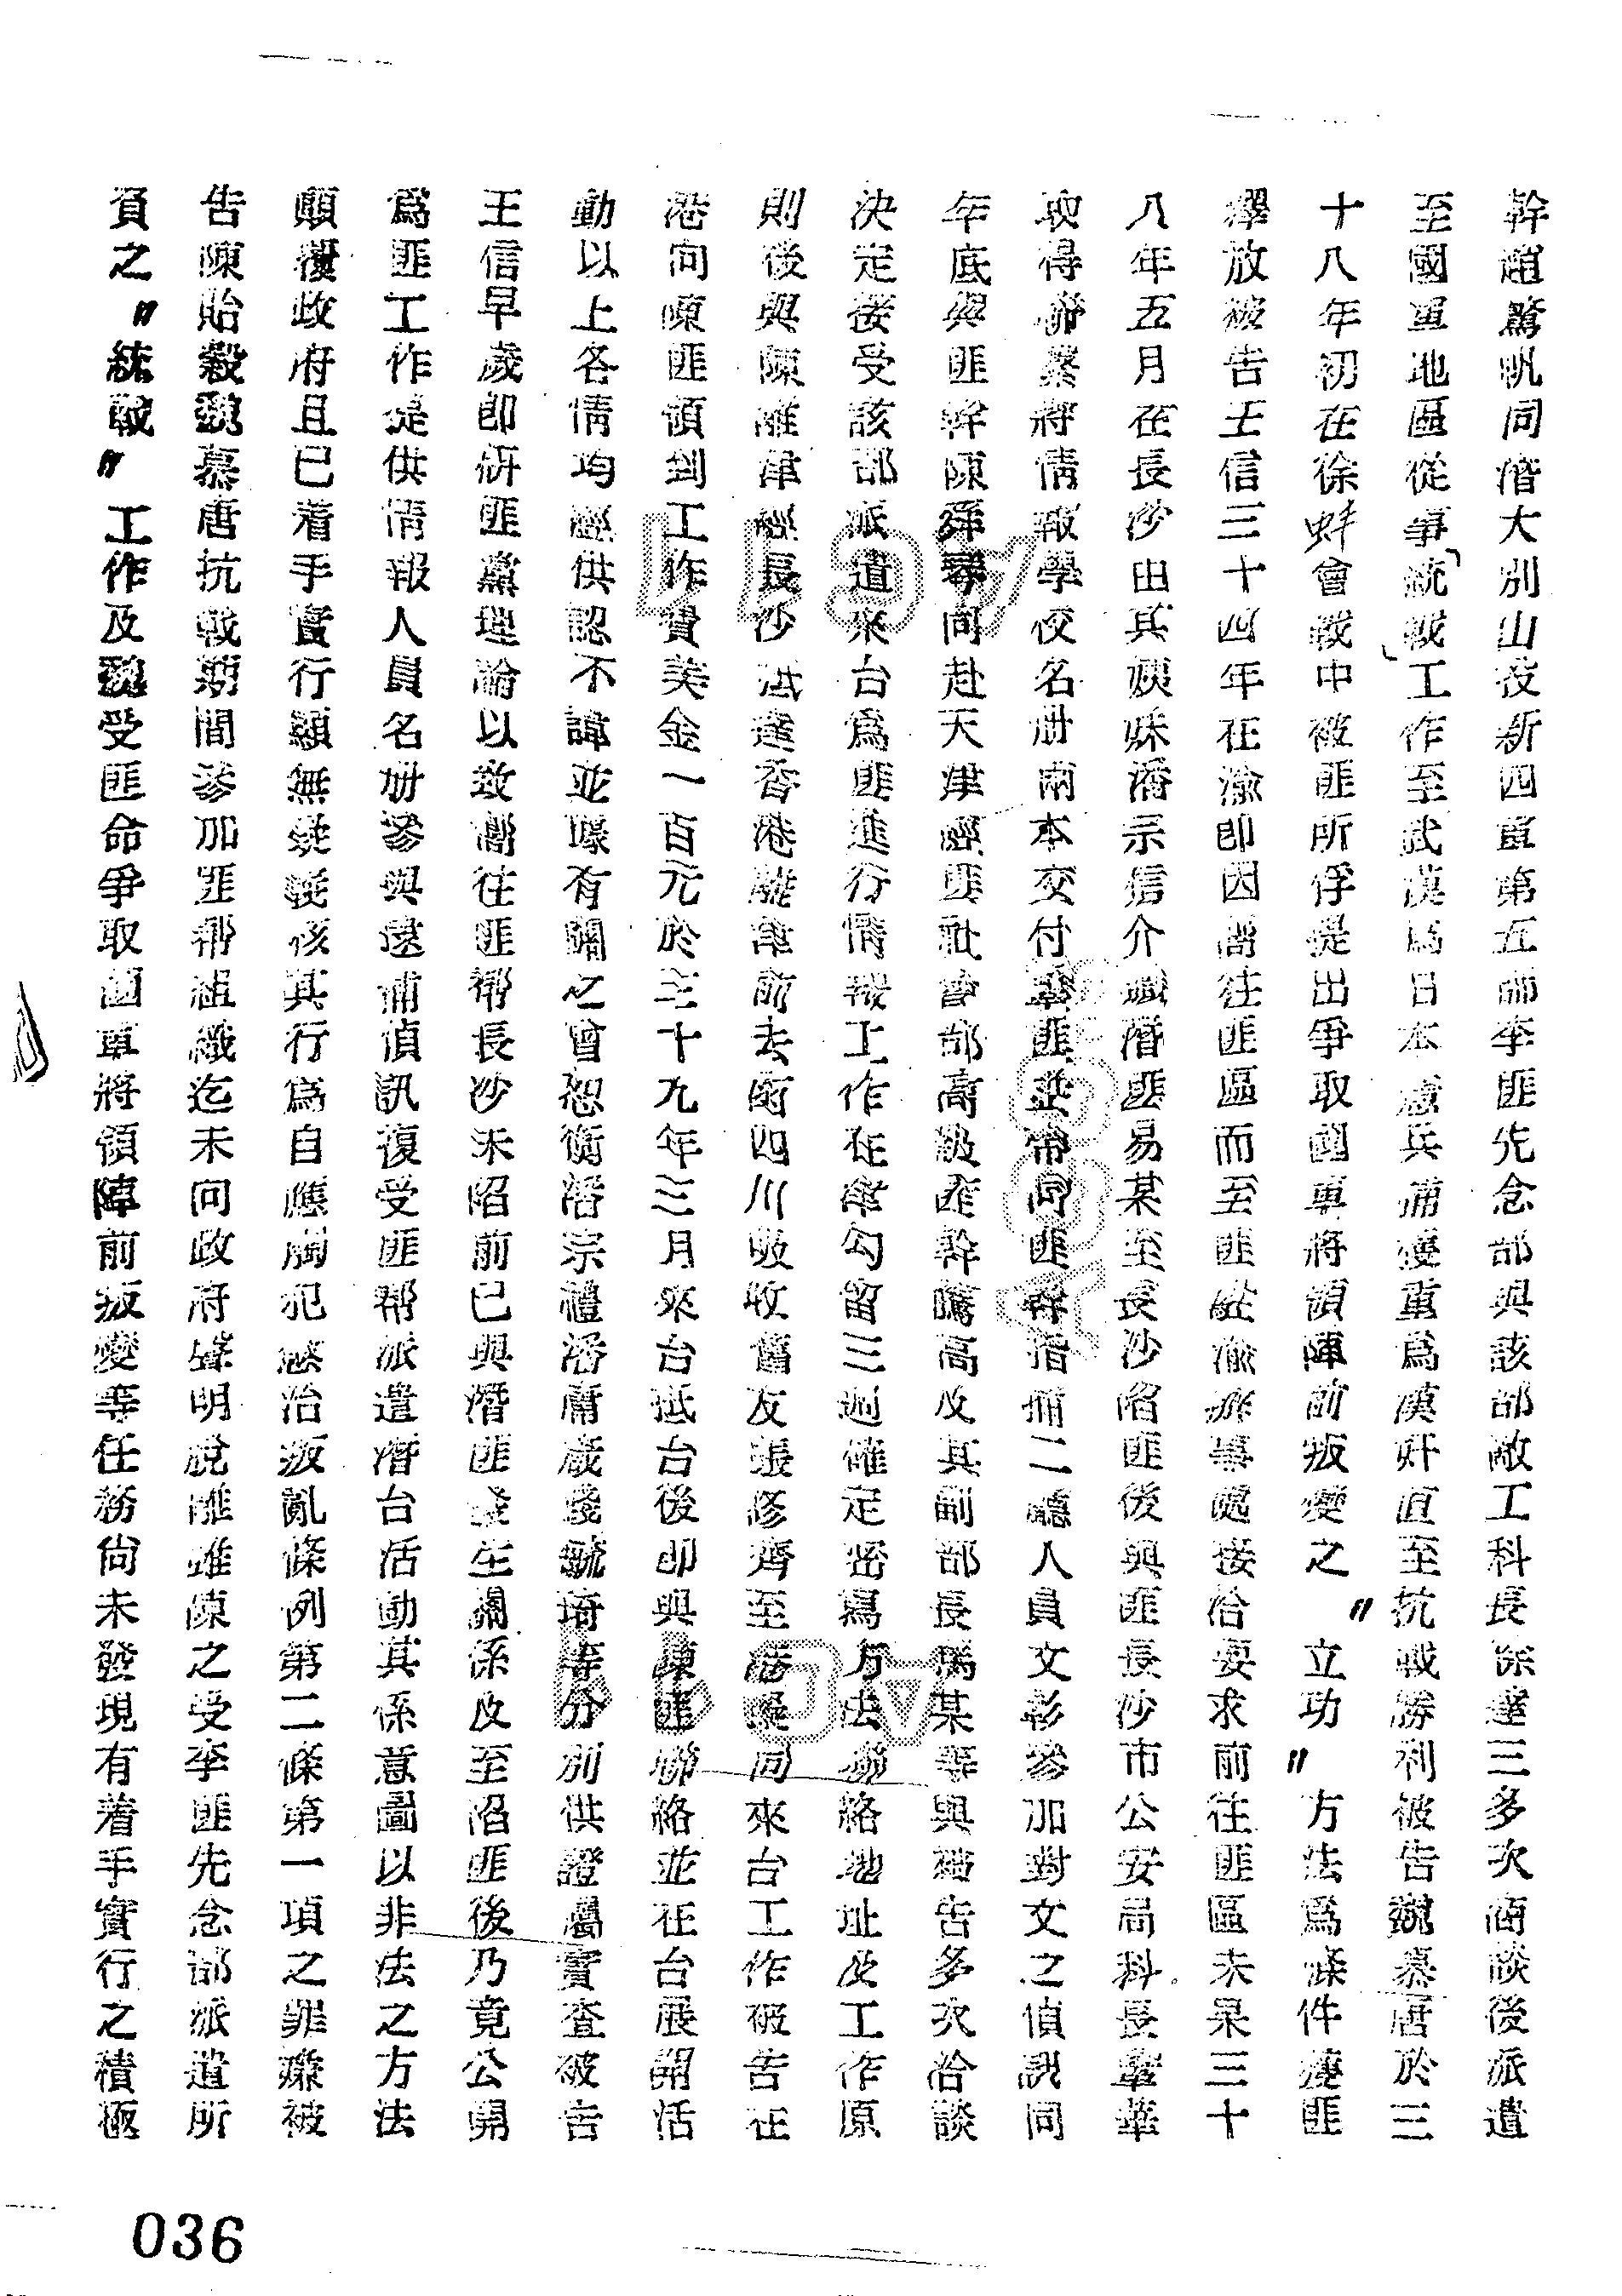 幹趙騖帆同潛大別山投新四軍第五師李匪先念部與該部敵工科長徐達三多次商談後派遣
至國軍地區從事「統戰」工作至武漢為日本憲兵捕獲重為漢奸直至抗戰勝利被告魏慕唐於三
十八年初在徐蚌會戰中被匪所俘提出爭取國軍將領陣前叛變之〃立功〃方法為條件獲匪
釋放被告王信三十四年在渝即因嚮往匪區而至匪駐渝辦事處接洽要求前往匪區未果三十
八年五月在長沙由其姨妹潘示信介識潛匪易某至長沙陷匪後與匪長沙市公安局科長單華
取得聯繫將情報學校名冊兩本交付單匪並帶同匪幹指捕二廳人員文彰參加對文之偵訊同
年底與匪幹陳舜尋同赴天津經匪社會部高級匪幹騰高及其副部長楊某等與被告多次洽談
決定接受該部派遣來台為匪進行情報工作在津勾留三週確定密寫方法聯絡地址及工作原
則後與陳離津經長沙派達香港離津前去函四川吸收舊友張修齊至港乘同來台工作被告在
港向陳匪領到工作費美金一百元於三十九年三月來台抵台後即與陳匪聯絡並在台展開活
動以上各情均經供認不諱並據有關之曾恕衡潘宗禮潘庸歲錢毓琦等分別供證屬實查被告
王信早歲即研匪黨理論以致嚮往匪幫長沙未陷前已與潛匪發生關係及至陷匪後乃竟公開
為匪工作提供情報人員名冊參與逮捕偵訊復受匪幫派遣潛台活動其係意圖以非法之方法
顛覆政府且已着手實行顯無疑義核其行為自應觸犯懲治叛亂條例第二條第一項之罪嫌被
告陳貽穀魏慕唐抗戰期間參加匪幫組織迄未向政府聲明脫離雖陳之受李匪先念部派遣所
負之〃統戰〃工作及魏受匪命爭取國軍將領陣前叛變等任務尚未發現有着手實行之積極
036